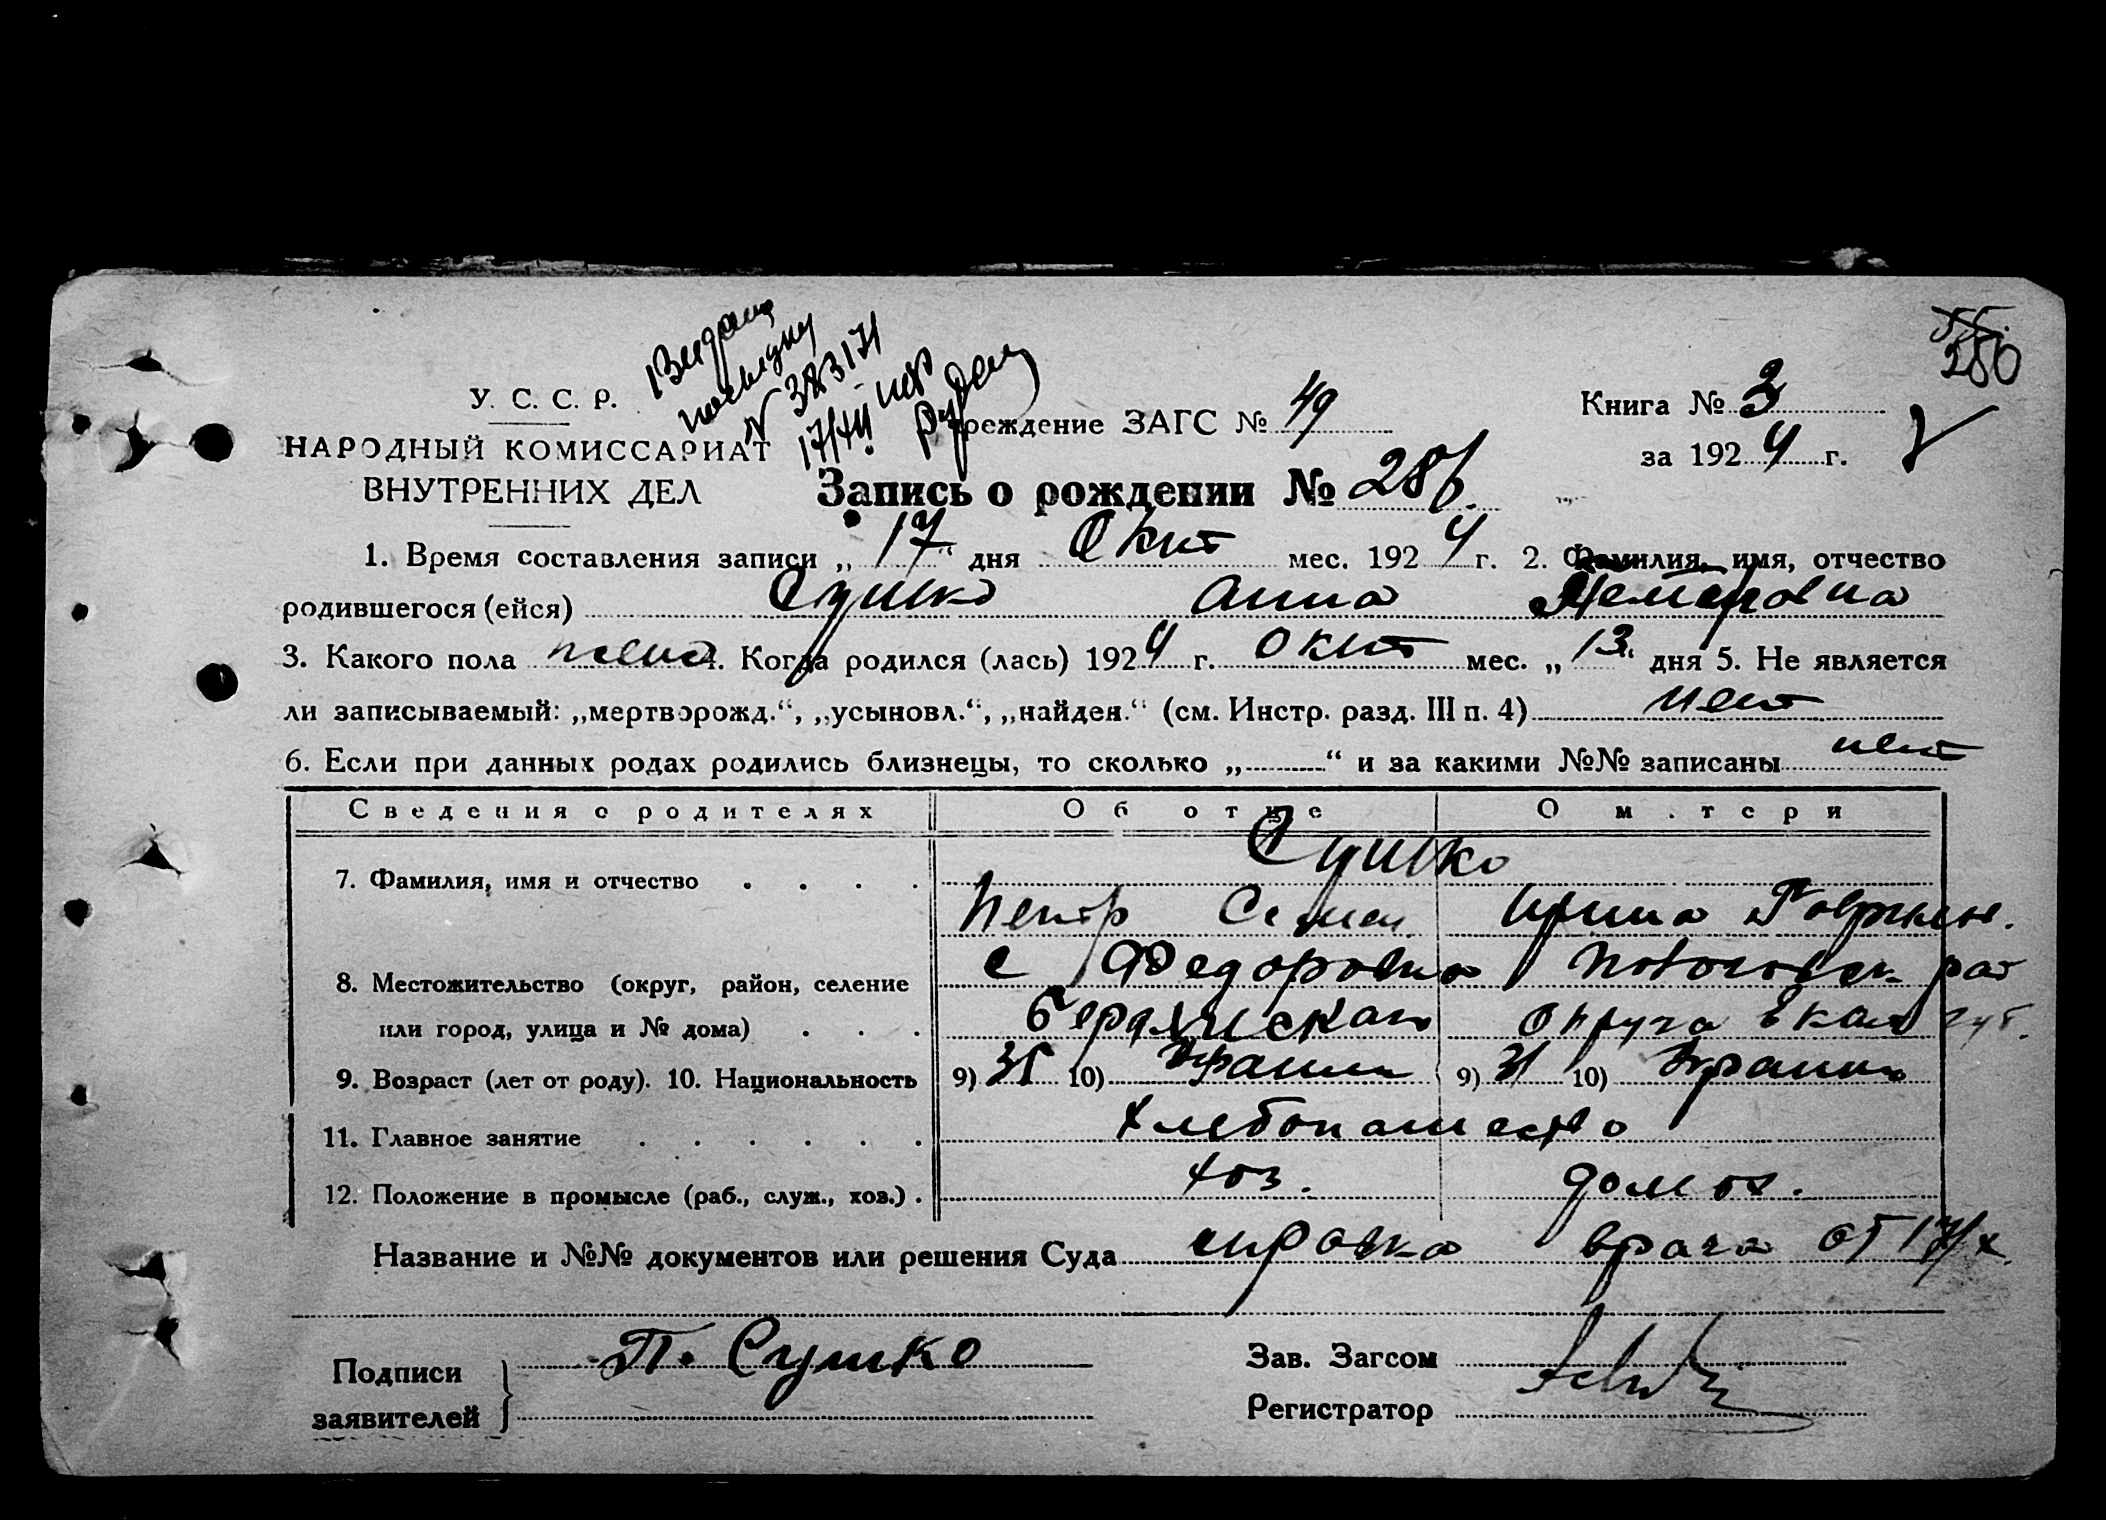 280
У. С. С. Р.
НАРОДНЫЙ КОМИССАРИАТ
ВНУТРЕННИХ ДЕЛ
Видана
N 323171
реждение ЗАГС № 49
Книга № 3
за 1924 г.
Запись о рождении № 286
1. Время составления записи „ 17 “ дня Окт мес. 1924 г. 2. Фамилия, имя, отчество
родившегося (ейся) Сушко Анна Петровна
3. Какого пола жена 4. Когда родился (лась) 1924 г. Окт мес. „ 13 “ дня 5. Не является
ли записываемый: „мертворожд.“, „усыновл.“, „найден.“ (см. Инстр. разд. III п. 4) нет
6. Если при данных родах родились близнецы, то сколько „ “ и за какими №№ записаны нет
Сведения о родителях Об отце О м.тери
Сушко
7. Фамилия, имя и отчество
Петр Семен. Ирина Гаврил.
8. Местожительство (округ, район, селение с Федоровка
или город, улица и № дома) Бердянского округа Екат губ.
9. Возраст (лет от роду). 10. Национальность 9) 35 10) Украин 9) 31 10) Украин
11. Главное занятие Хлебопашество
12. Положение в промысле (раб., служ., хоз.) хоз. домох.
Название и №№ документов или решения Суда справка врача от 17/х
Подписи П. Сушко Зав. Загсом
заявителей Регистратор